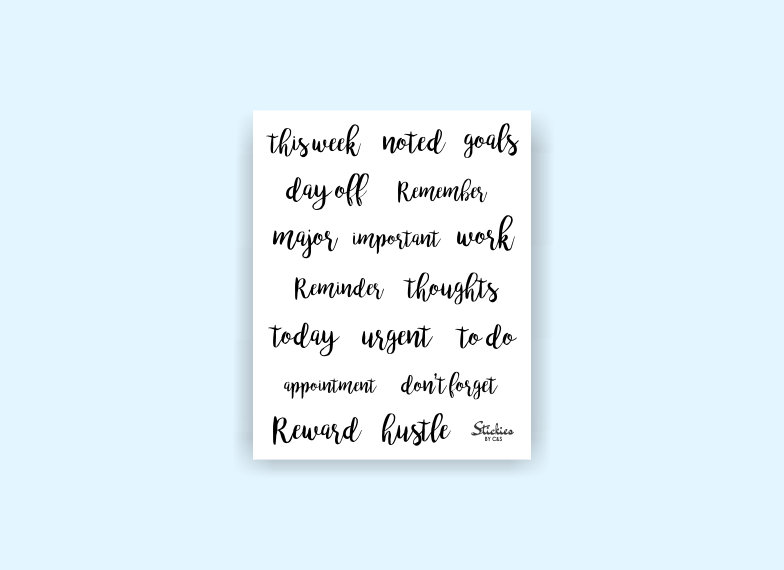 this week noted goals
day off Remember
major important work
Reminder thoughts
today urgent to do
appointment don't forget
Reward hustle Stickies
BY C&S